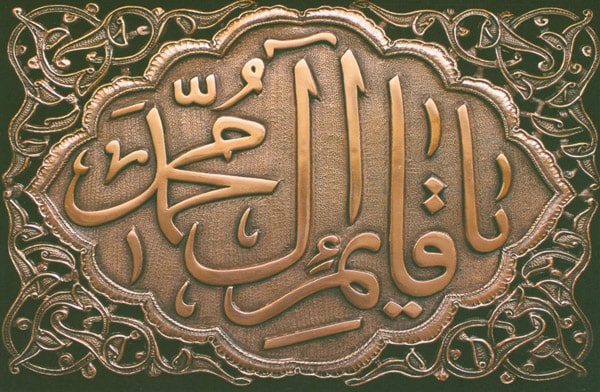 یا قائم آل محمّد